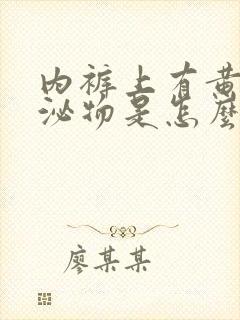 内裤上有黄
泌物是怎麼
廖某某